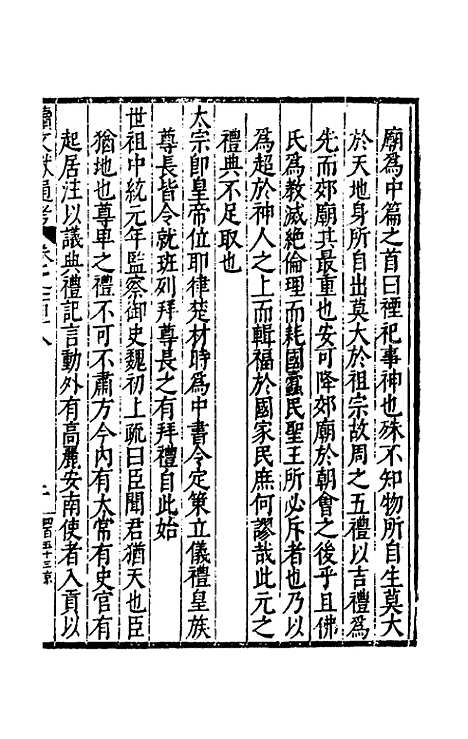 廟爲中篇之首曰禋祀事神也殊不知物所自生莫大
於天地身所自出莫大於祖宗故周之五禮以吉禮爲
先而郊廟其最重也安可降郊廟於朝會之後乎且佛
氏爲教滅絶倫理而耗國蠧民聖王所必斥者也乃以
爲超於神人之上而輯福於國家民庶何謬哉此元之
禮典不足取也
太宗即皇帝位耶律楚材時爲中書令定策立儀禮皇族
尊長皆令就班列拜尊長之有拜禮自此始
世祖中統元年監察御史魏初上疏曰臣聞君猶天也臣
猶地也尊卑之禮不可不肅方今內有太常有史官有
起居注以議典禮記言動外有高麗安南使者入貢以
續文獻通考